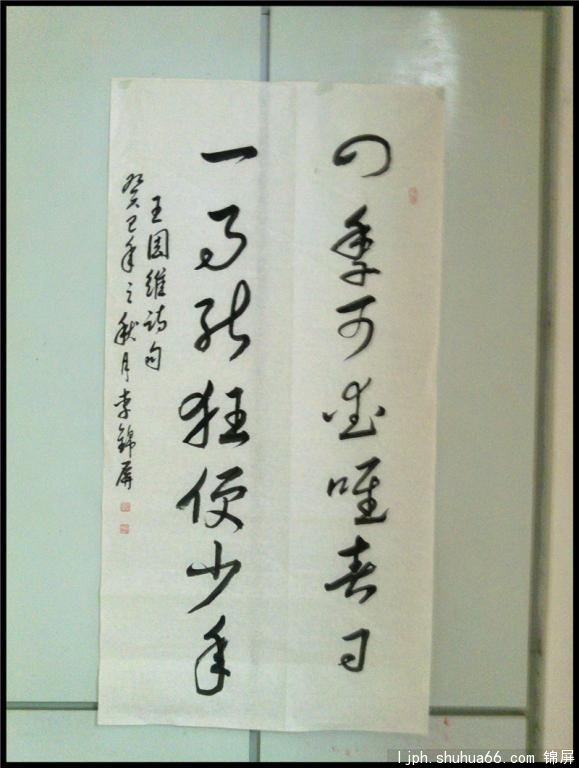 四季可爱唯春日
一事能狂便少年
王国维诗句
癸巳年之秋月李锦屏
ljph.shuhua66.com 锦屏